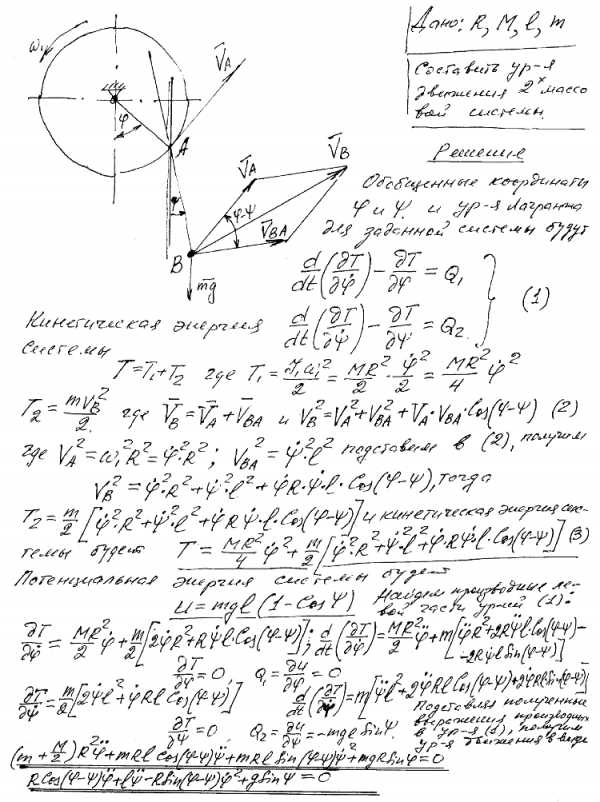 Дано: R, M, l, m
Составить ур-я
движения 2ˣ массо
вой системы.
ω₁
φ
V̄_A
A
ψ
V̄_A
V̄_B
φ-ψ
V̄_BA
B
m̄g
Решение
Обобщенные координаты
φ и ψ. и ур-я Лагранжа
для заданной системы будут
d/dt(∂T/∂φ̇) - ∂T/∂φ = Q₁
d/dt(∂T/∂ψ̇) - ∂T/∂ψ = Q₂
(1)
Кинетическая энергия
системы
T = T₁+T₂ где T₁ = J₁ω₁²/2 = MR²/2 · φ̇²/2 = MR²/4 φ̇²
T₂ = mV_B²/2 где V̄_B = V̄_A + V̄_BA и V_B² = V_A² + V_BA² + V_A·V_BA·Cos(φ-ψ) (2)
где V_A² = ω₁²R² = φ̇²·R²; V_BA² = ψ̇²·l² подставим в (2), получим
V_B² = φ̇²·R² + ψ̇²·l² + φ̇R·ψ̇·l·Cos(φ-ψ), тогда
T₂ = m/2 [φ̇²·R² + ψ̇²·l² + φ̇Rψ̇·l·Cos(φ-ψ)] и кинетическая энергия сис-
темы будет T = MR²/4 φ̇² + m/2 [φ̇²R² + ψ̇²l² + φ̇·Rψ̇l·Cos(φ-ψ)] (3)
Потенциальная энергия системы будет
u = mgl(1-Cosψ)
Найдем производные ле-
вой части ур-ий (1):
∂T/∂φ̇ = MR²/2 φ̇ + m/2 [2φ̇R² + Rψ̇l Cos(φ-ψ)]; d/dt(∂T/∂φ̇) = MR²/2 φ̈ + m[φ̈R² + 2Rψ̈l·Cos(φ-ψ) -
- 2Rψ̇l Sin(φ-ψ)]
∂T/∂φ = 0, Q₁ = ∂u/∂φ = 0,
∂T/∂ψ̇ = m/2 [2ψ̇l² + φ̇Rl Cos(φ-ψ)] d/dt(∂T/∂ψ̇) = m[ψ̈l² + 2φ̈Rl Cos(φ-ψ) + 2φ̇Rl Sin(φ-ψ)]
∂T/∂ψ = 0, Q₂ = ∂u/∂ψ = -mgl Sinψ.
Подставляя полученные
выражения производных
в ур-я (1), получим
ур-я движения в виде
(m + M/2)R²φ̈ + mRl Cos(φ-ψ)ψ̈ + mRl Sin(φ-ψ)ψ̇² + mgRSinφ = 0
RCos(φ-ψ)φ̈ + lψ̈ - RSin(φ-ψ)φ̇² + gSinψ = 0